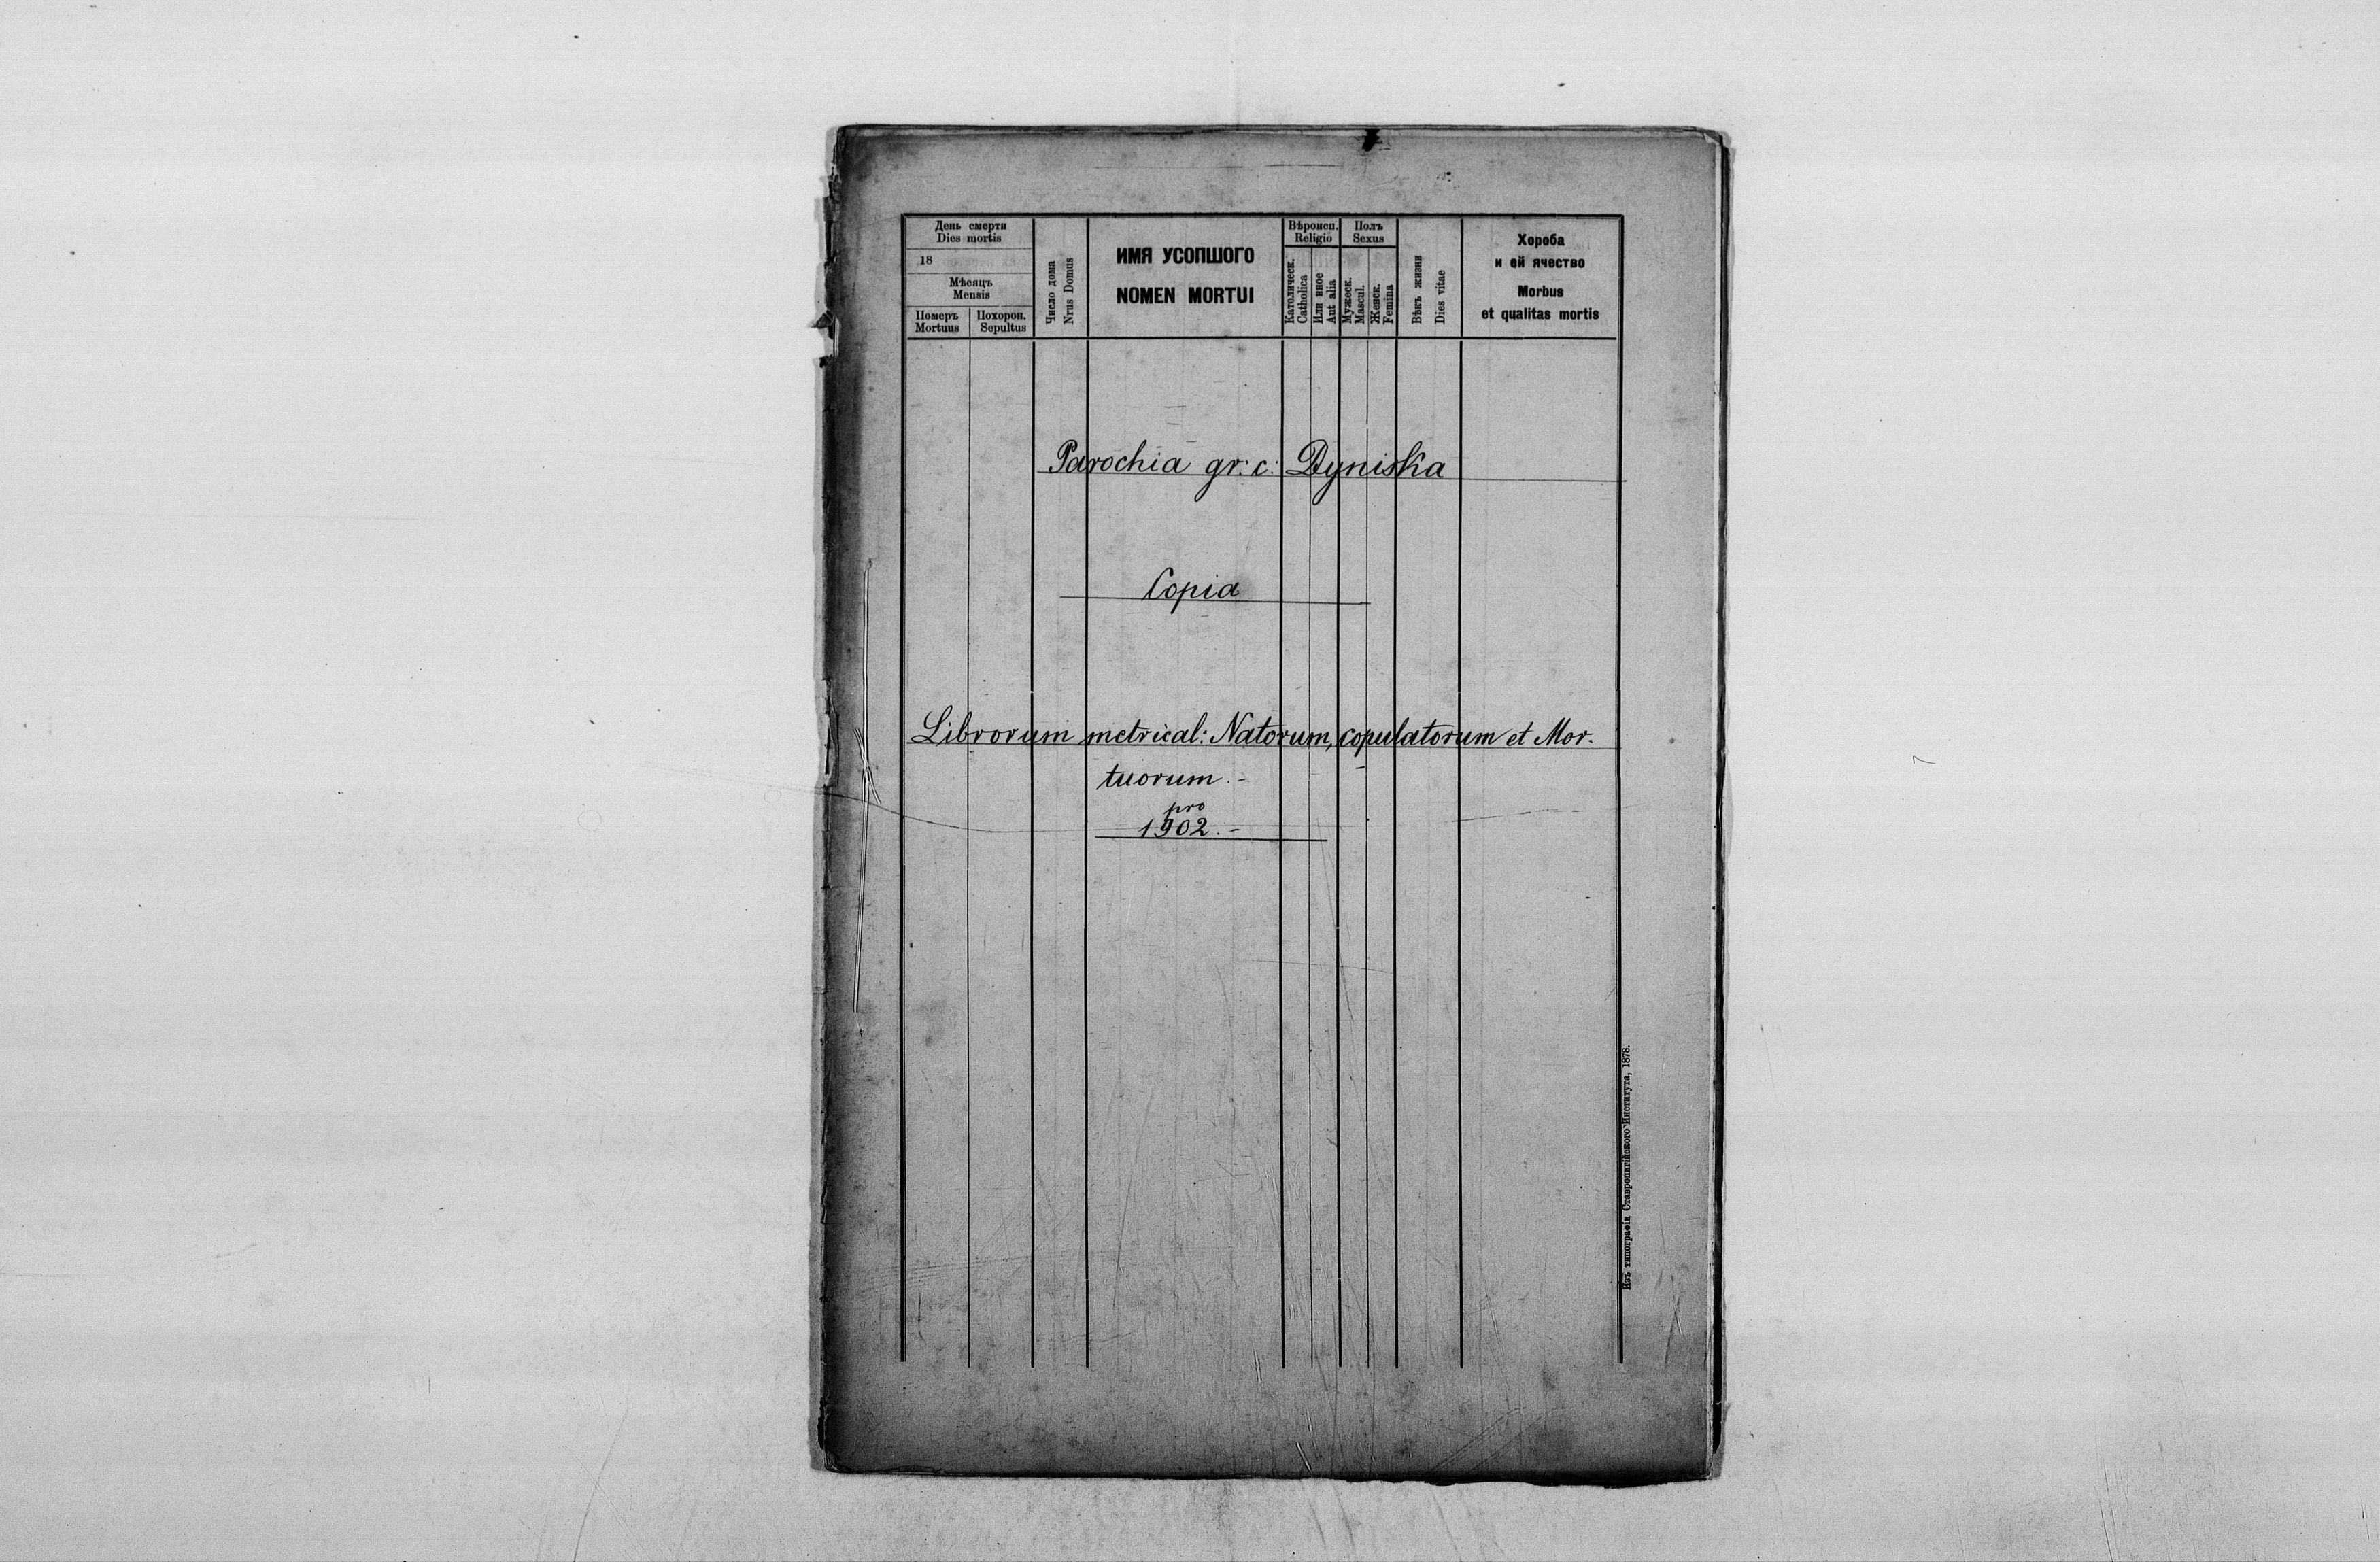 День смерти
Dies mortis
18
Мѣсяцъ
Mensis
Померъ
Mortuus
Похорон.
Sepultus
Число дома
Nrus Domus
ИМЯ УСОПШОГО
NOMEN MORTUI
Вѣроисп.
Religio
Католическ.
Catholica
Или иное
Aut alia
Полъ
Sexus
Мужеск.
Mascul.
Женск.
Femina
Вѣкъ жизни
Dies vitae
Хороба
и ей ячество
Morbus
et qualitas mortis
Parochia gr: c: Dyniska
Copia
Librorum metrical: Natorum, copulatorum et Mor-
tuorum.-
pro
1902.-
Изъ типографіи Ставропигійского Института, 1878.